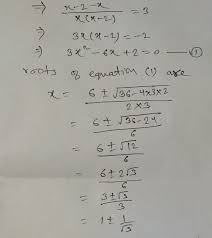 ⇒ x-2-x / x(x-2) = 3
⇒ 3x(x-2) = -2
⇒ 3x² - 6x + 2 = 0 — ①
roots of equation (1) are
x = 6 ± √36-4×3×2 / 2×3
= 6 ± √36-24 / 6
= 6 ± √12 / 6
= 6 ± 2√3 / 6
= 3 ± √3 / 3
= 1 ± 1/√3